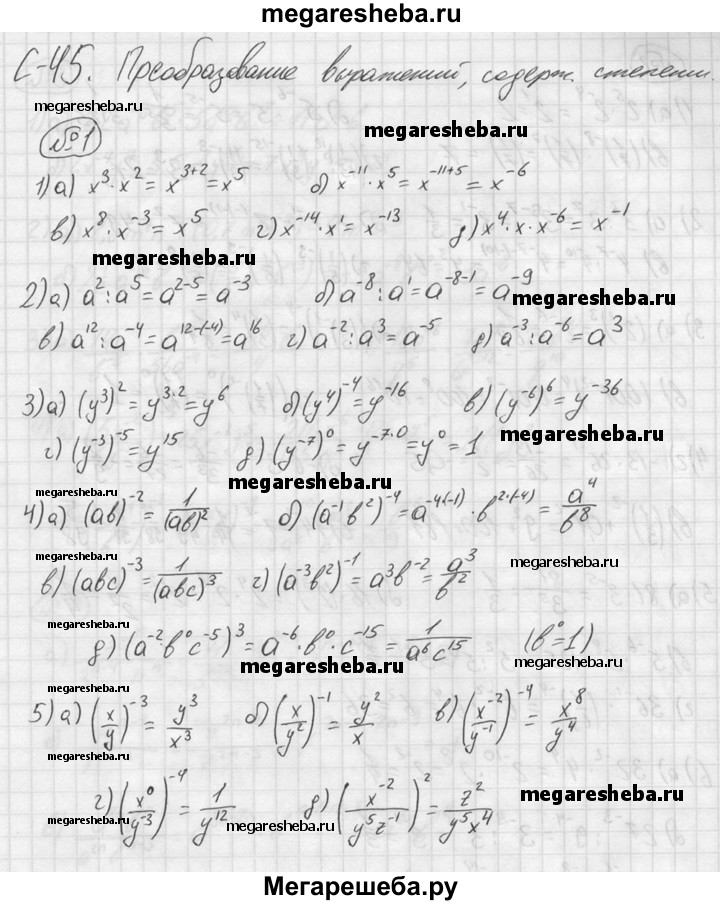 megaresheba.ru
С-45. Преобразование выражений, содерж. степени.
megaresheba.ru
№1 megaresheba.ru
1) а) x³·x² = x³⁺² = x⁵ б) x⁻¹¹·x⁵ = x⁻¹¹⁺⁵ = x⁻⁶
в) x⁸·x⁻³ = x⁵ г) x⁻¹⁴·x¹ = x⁻¹³ д) x⁴·x·x⁻⁶ = x⁻¹
megaresheba.ru
2) а) a²:a⁵ = a²⁻⁵ = a⁻³ б) a⁻⁸:a¹ = a⁻⁸⁻¹ = a⁻⁹
megaresheba.ru
в) a¹²:a⁻⁴ = a¹²⁻⁽⁻⁴⁾ = a¹⁶ г) a⁻²:a³ = a⁻⁵ д) a⁻³:a⁻⁶ = a³
3) а) (y³)² = y³·² = y⁶ б) (y⁴)⁻⁴ = y⁻¹⁶ в) (y⁻⁶)⁶ = y⁻³⁶
megaresheba.ru
г) (y⁻³)⁻⁵ = y¹⁵ д) (y⁻⁷)⁰ = y⁻⁷·⁰ = y⁰ = 1
megaresheba.ru megaresheba.ru
4) а) (ab)⁻² = 1/(ab)² б) (a⁻¹b²)⁻⁴ = a⁻⁴·⁽⁻¹⁾·b²·⁽⁻⁴⁾ = a⁴/b⁸
megaresheba.ru megaresheba.ru
в) (abc)⁻³ = 1/(abc)³ г) (a⁻³b²)⁻¹ = a³b⁻² = a³/b²
megaresheba.ru
д) (a⁻²·b⁰c⁻⁵)³ = a⁻⁶·b⁰·c⁻¹⁵ = 1/a⁶c¹⁵ (b⁰=1)
megaresheba.ru megaresheba.ru
megaresheba.ru
5) а) (x/y)⁻³ = y³/x³ б) (x/y²)⁻¹ = y²/x в) (x⁻²/y⁻¹)⁻⁴ = x⁸/y⁴
megaresheba.ru
г) (x⁰/y⁻³)⁻⁴ = 1/y¹² д) (x⁻²/y⁵z⁻¹)² = z²/y⁵x⁴
megaresheba.ru
megaresheba.ru
Мегарешеба.ру